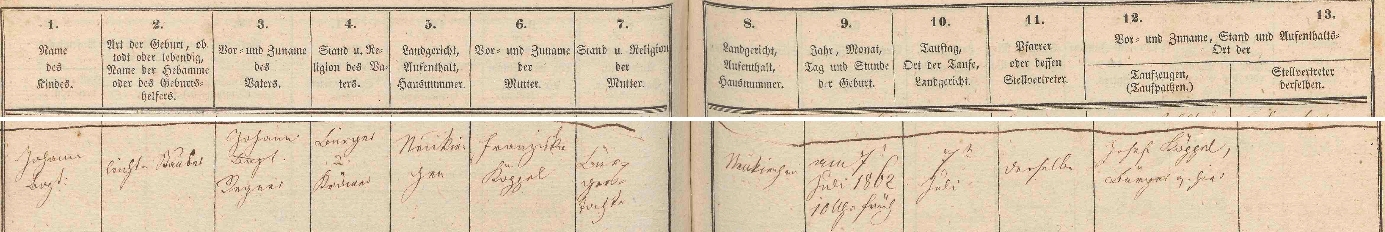 1.
Name
des
Kindes.
2.
Art der Geburt, ob
todt oder lebendig,
Name der Hebamme
oder des Geburts-
helfers.
3.
Vor- und Zuname
des
Vaters.
4.
Stand u. Re-
ligion des Va-
ters.
5.
Landgericht,
Aufenthalt,
Hausnummer.
6.
Vor- und Zuname
der
Mutter.
7.
Stand u. Religion
der
Mutter.
8.
Landgericht,
Aufenthalt,
Hausnummer.
9.
Jahr, Monat,
Tag und Stunde
der Geburt.
10.
Tauftag,
Ort der Taufe,
Landgericht.
11.
Pfarrer
oder dessen
Stellvertreter.
12.
13.
Vor- und Zuname, Stand und Aufenthalts-
Ort der
Taufzeugen,
(Taufpathen.)
Stellvertreter
derselben.
Johann
Bapt.
Johann
Bapt.
Bürger
Neukir-
chen
Franziska
Köppel
Bür-
gers-
tochter
Neukirchen
am 7
Juli 1862
10 Uhr früh
7
Juli
derselbe
Josef Köppel,
Bürger